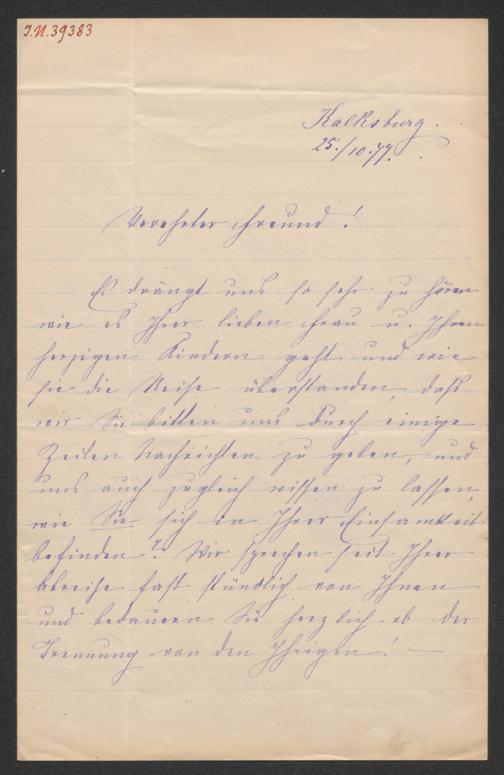 I.N.39383
Kalksburg.
25./10.77.
Verehrter Freund!
Es drängt uns so sehr zu hören
wie es Ihrer lieben Frau u. Ihren
herzigen Kindern geht und wie
sie die Reise überstanden, daß
wir Sie bitten uns durch einige
Zeilen Nachrichten zu geben, und
uns auch zugleich wissen zu lassen,
wie Sie sich in Ihrer Einsamkeit
befinden? Wir sprechen seit Ihrer
Abreise fast stündlich von Ihnen
und bedauern Sie herzlich ob der
Trennung von den Ihrigen! —